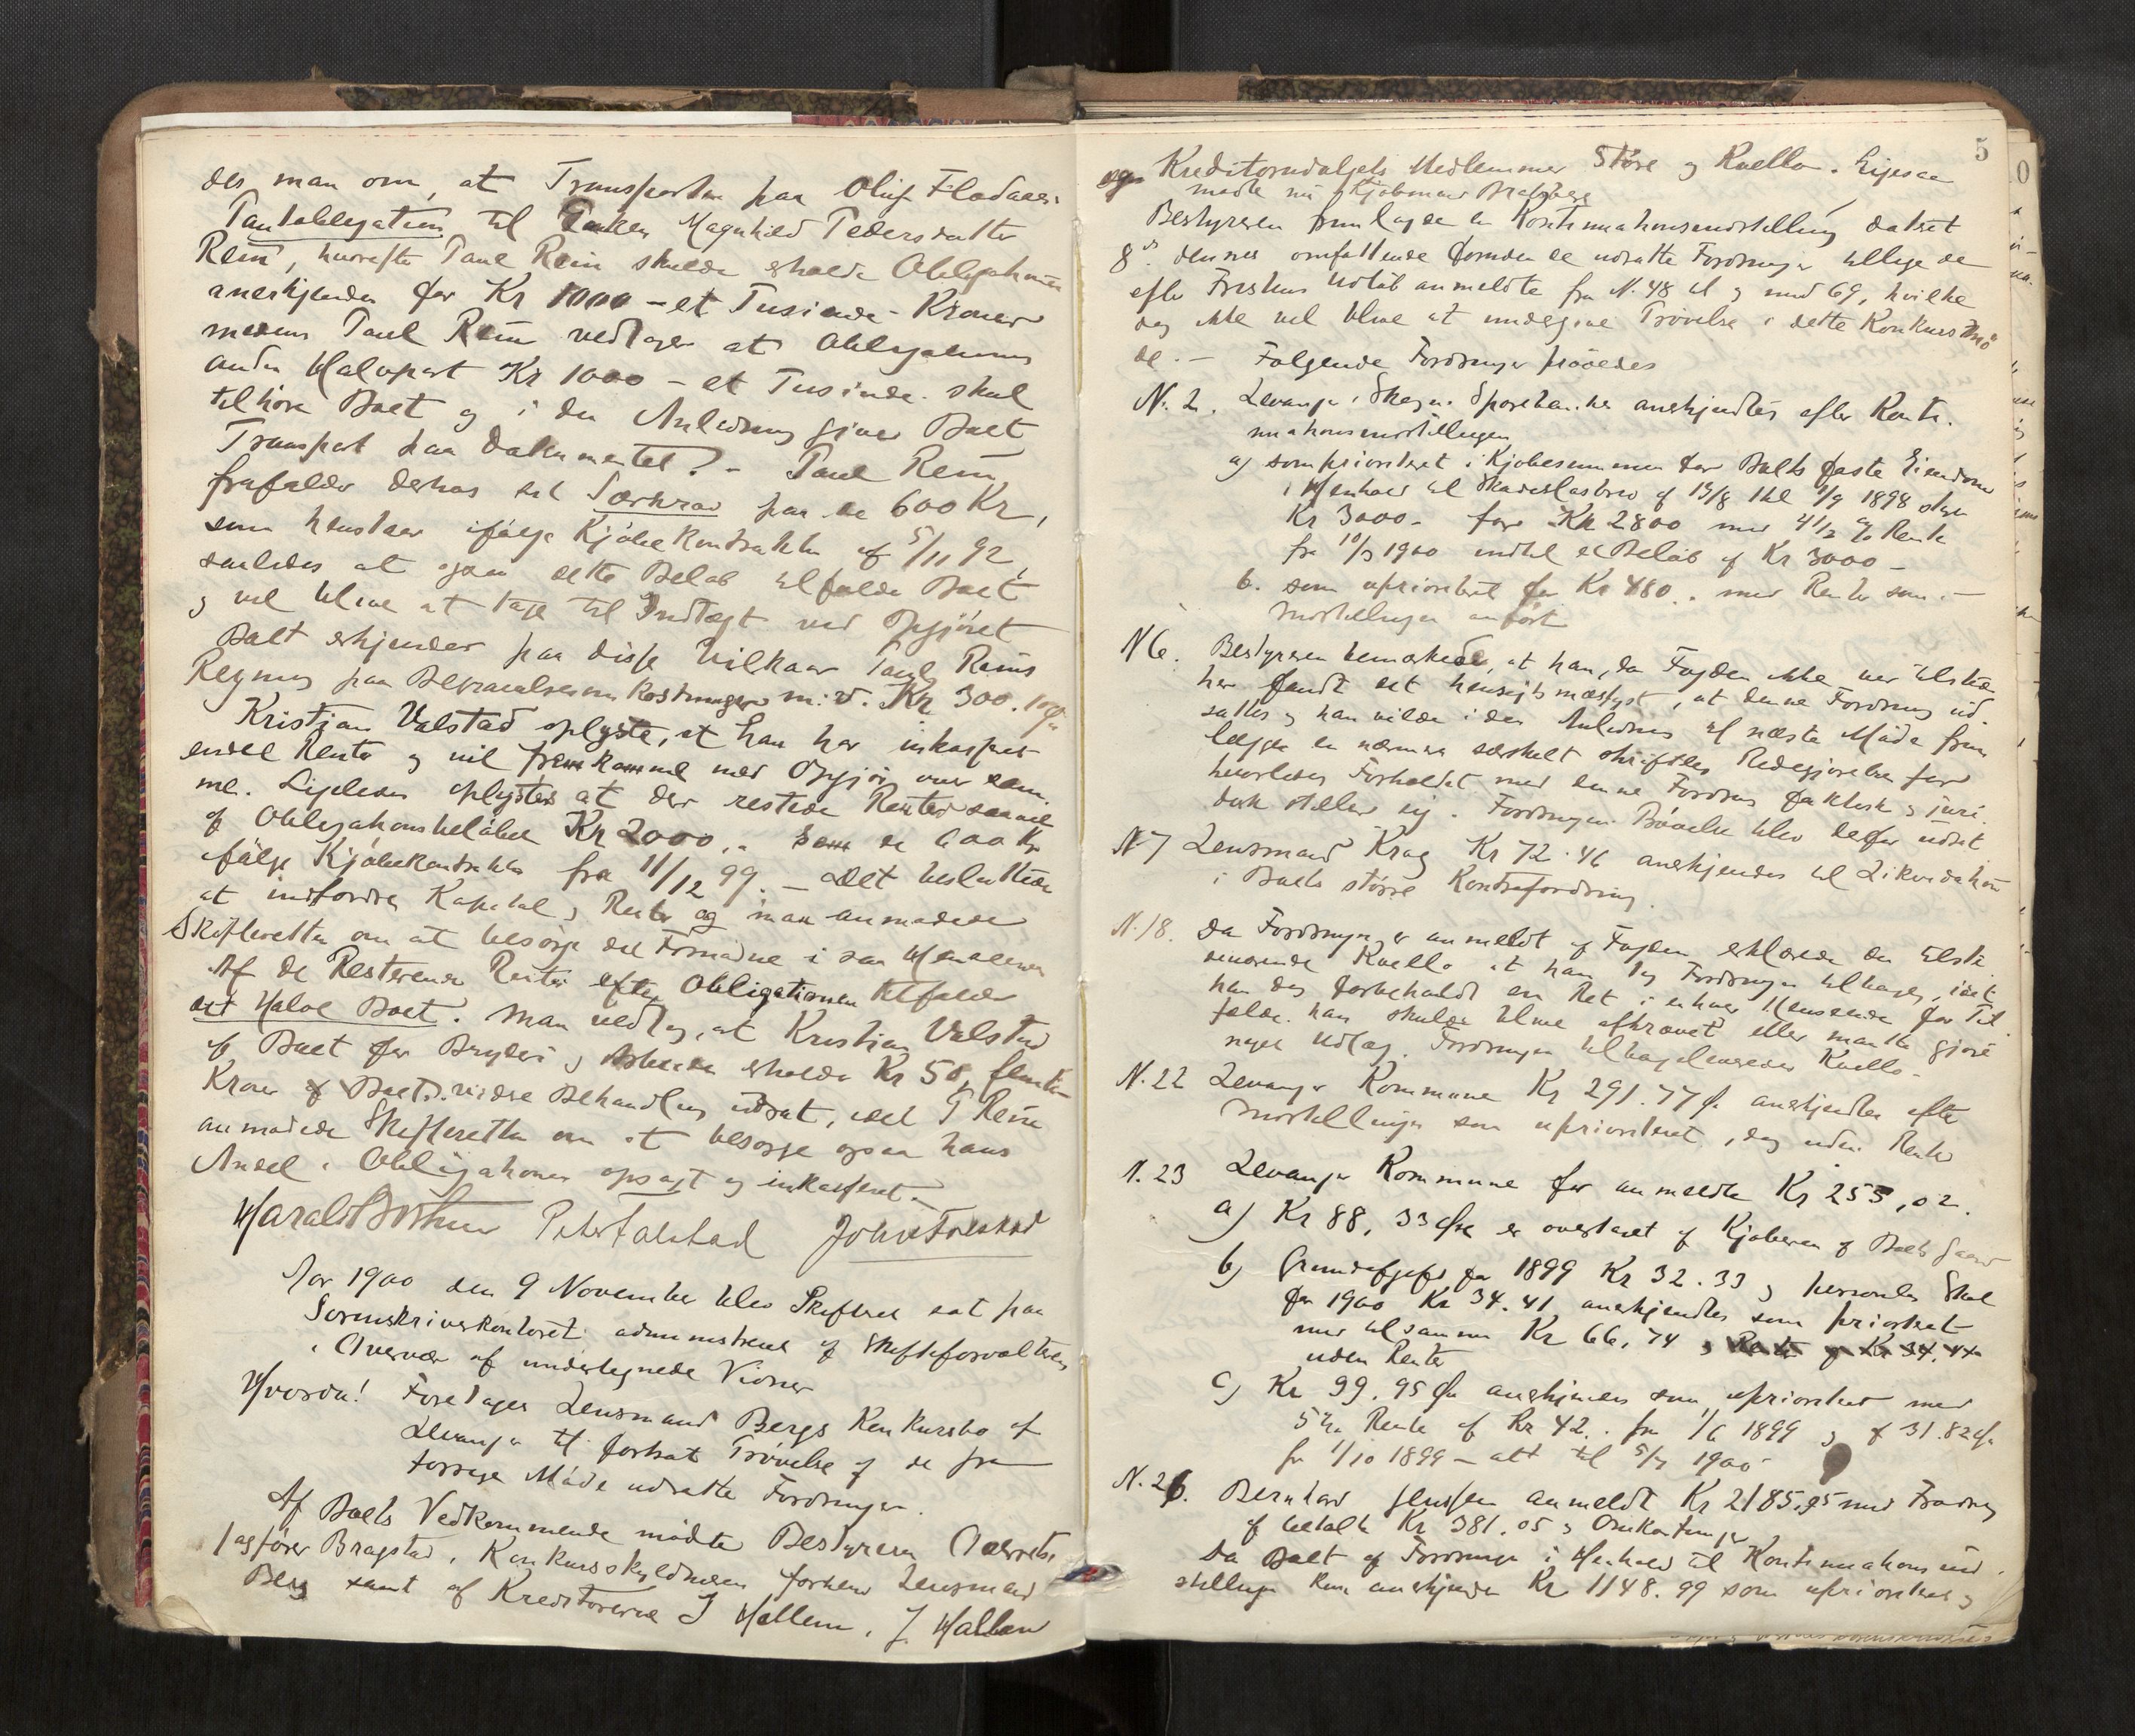 des man om, at Transporten paa Oluf Flodaaes
Pantobligation til Enken Magnhild Pedersdatter
Rein, hvorefter Paul Rein skulde erholde Obligationen
anerkjendes for Kr 1000 - et Tusinde - Kroner
medens Paul Rein vedtager at Obligationens
anden Halvpart Kr 1000 - et Tusinde - skal
tilhøre Boet og i den Anledning giver Boet
Transport paa Dokumentet. - Paul Rein
frafalder derhos sit Særkrav paa de 600 Kr,
som henstaar ifølge Kjøbekontrakten af 5/11 92,
saaledes at ogsaa dette Beløb tilfalder Boet
og vil blive at tage til Indtægt ved Opgjøret
Boet erkjender paa disse Vilkaar Paul Reins
Regning paa Begravelsesomkostninger m: v. Kr 300.10 Øre
Kristian Valstad oplyste, at han har inkasseret
endel Renter og vil fremkomme med Opgjør over sam-
me. Ligeledes oplystes at der restede Renter saavel
af Obligationsbeløbet Kr 2000,- som de 600 Kr
ifølge Kjøbekontrakten fra 11/12 99. - Det besluttedes
at indfordre Kapital og Renter og man anmodede
Skifteretten om at besørge det Fornødne i saa Henseende
Af de Resterende Renter efter Obligationen tilfalder
det Halve Boet. Man vedtog, at Kristian Valstad
af Boet for Bryderi og Arbeide erholder Kr 50, femti
Kroner af Boet. videre Behandling udsat, idet P Rein
anmodede Skifteretten om at besørge ogsaa hans
Andel i Obligationen opsagt og inkasseret.
Harald Bothner Peter Falstad Johan Falstad
Aar 1900 den 9 November blev Skifteret sat paa
Sorenskriverkontoret administreret af Skifteforvalteren
i Overvær af undertegnede Vidner
Hvorda! Foretages Lensmand Bergs Konkursbo af
Levanger til fortsat Prøvelse af de fra
forrige Møde udsatte Fordringer.
Af Boets Vedkommende mødte Bestyreren Overrets-
sagfører Bragstad, Konkursskyldneren forhenv Lensmand
Berg samt af Kreditorerne J Hallem, J. Hallan
5
og Kreditorudvalgets Medlemmer Støre og Kvello. Ligesaa
mødte nu Kjøbmand
Bestyreren fremlagde en Kontinuationsindstilling dateret
8ds dennes omfattende foruden de udsatte Fordringer tillige de
efter Fristens Udløb anmeldte fra N. 48 til og med 69, hvilke
dog ikke vil blive at undergive Prøvelse i dette Konkursmø-
de. - Følgende Fordringer prøvedes
N. 2. Levanger & Skogns Sparebanker anerkjendtes efter Konti-
nuationsindstillingen
a) som prioriteret i Kjøbesummen for Boets faste Eiendom
i Henhold til Skadesløsbrev af 15/8 thl 1/9 1898 stort
Kr 3000- for Kr 2800 med 4 1/2 % Rente
fra 10/3 1900 indtil et Beløb af Kr 3000 -
b. som uprioriteret for Kr 480.. med Renter som i
Indstillingen anført
N 6. Bestyreren bemærkede, at han, da Fogden ikke var tilste-
der fandt det hensigtsmæssigst, at denne Fordring ud-
sattes og han vilde i den Anledning til næste Møde frem-
lægge en nærmere særskilt skriftlig Redegjørelse for
hvorledes Forholdet med denne Fordring faktisk og juri-
disk stiller sig. Fordringens Prøvelse blev derfor udsat
N 7 Lensmand Krag Kr 72.46 anerkjendes til Likvidation
i Boets større Kontrafordring.
N. 18. Da Fordringen er anmeldt af Fogden erklærede den tilste-
deværende Kvello at han tog Fordringen tilbage, idet
han dog forbeholdt en Ret i enhver Henseende for Til-
fælde han skulde blive afkrævet eller maatte gjøre
noget Udlæg. Fordringen tilbageleveredes Kvello.
N. 22 Levanger Kommune Kr 291.77 Ø. anerkjendtes efter
Indstillingen som uprioriteret, dog uden Renter
N. 23 Levanger Kommune for anmeldte Kr 255,02.
a) Kr 88,33 Øre er overtaget af Kjøberen af Boets Gaard
b) Grundafgift for 1899 Kr 32.33 og personlig Skat
for 1900 Kr 34.41 anerkjendtes som prioriteret
med tilsammen Kr 66,74
uden Renter
c) Kr 99.95 Øre anerkjendes som uprioriteret med
5 % Rente af Kr 42.. fra 1/6 1899 og af 31.82 Øre
fra 1/10 1899 - alt til 5/7 1900
N. 26. Bernhard Jenssen anmeldt Kr 2185.95 med Fradrag
af betalte Kr 381.05 og Omkostninger
Da Boet af Fordringen i Henhold til Kontinuationsind-
stillingen kun anerkjender Kr 1148.99 som uprioriteret og